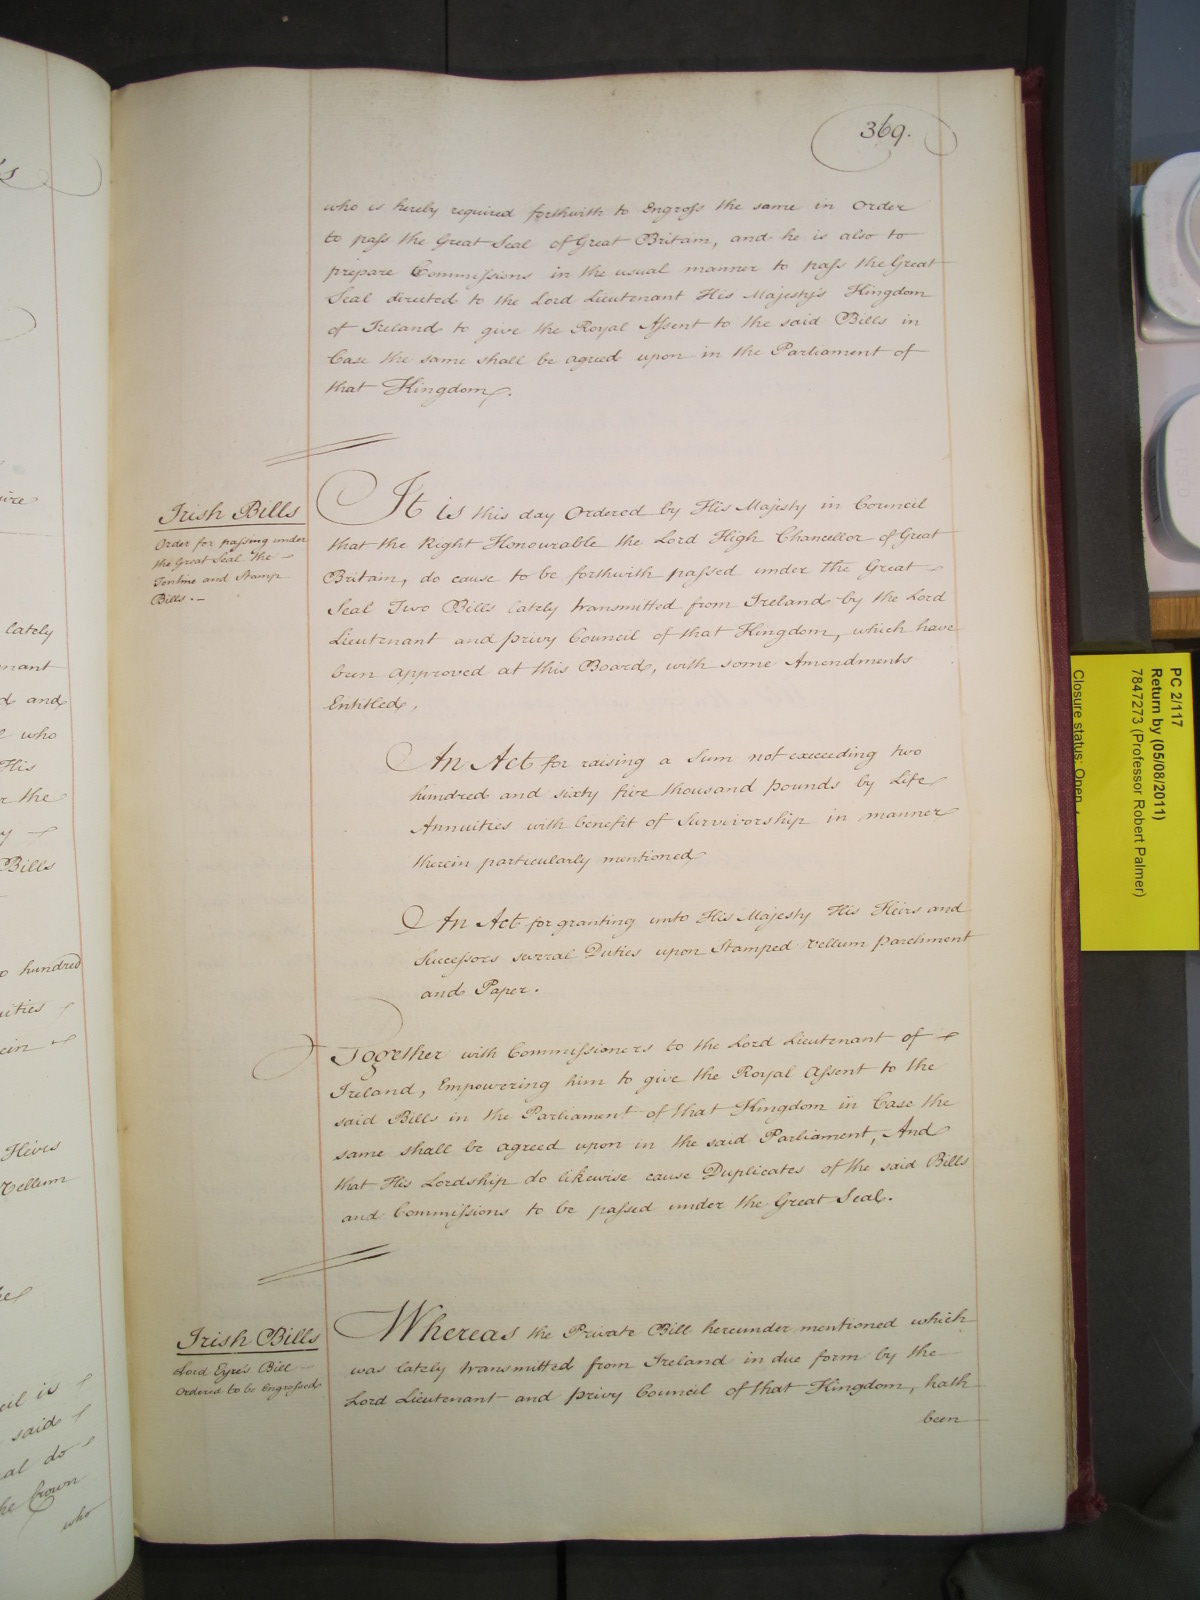 369.
who is hereby required forthwith to Engross the same in Order
to pass the Great Seal of Great Britain, and he is also to
prepare Commissions in the usual manner to pass the Great
Seal directed to the Lord Lieutenant His Majesty's Kingdom
of Ireland to give the Royal Assent to the said Bills in
Case the same shall be agreed upon in the Parliament of
that Kingdom.
Irish Bills
Order for passing under
the Great Seal the
Tontine and Stamp
Bills.
It is this day Ordered by His Majesty in Council
that the Right Honourable the Lord High Chancellor of Great
Britain, do cause to be forthwith passed under the Great
Seal Two Bills lately transmitted from Ireland by the Lord
Lieutenant and privy Council of that Kingdom, which have
been approved at this Board, with some Amendments
Entitled,
An Act for raising a Sum not exceeding two
hundred and sixty five thousand pounds by Life
Annuities with benefit of Survivorship in manner
therein particularly mentioned
An Act for granting unto His Majesty His Heirs and
Successors several Duties upon Stamped Vellum Parchment
and Paper.
Together with Commissioners to the Lord Lieutenant of
Ireland, Empowering him to give the Royal Assent to the
said Bills in the Parliament of that Kingdom in Case the
same shall be agreed upon in the said Parliament, And
that His Lordship do likewise cause Duplicates of the said Bills
and Commissions to be passed under the Great Seal.
Irish Bills
Lord Eyre's Bill
Ordered to be Engrossed
Whereas the Private Bill hereunder mentioned which
was lately transmitted from Ireland in due form by the
Lord Lieutenant and privy Council of that Kingdom, hath
been
lately
and
who
His
the
Bills
hundred
Heirs
Vellum
said
do
Crown
who
PC 2/117
Return by (05/08/2011)
7847273 (Professor Robert Palmer)
Closure status: Open